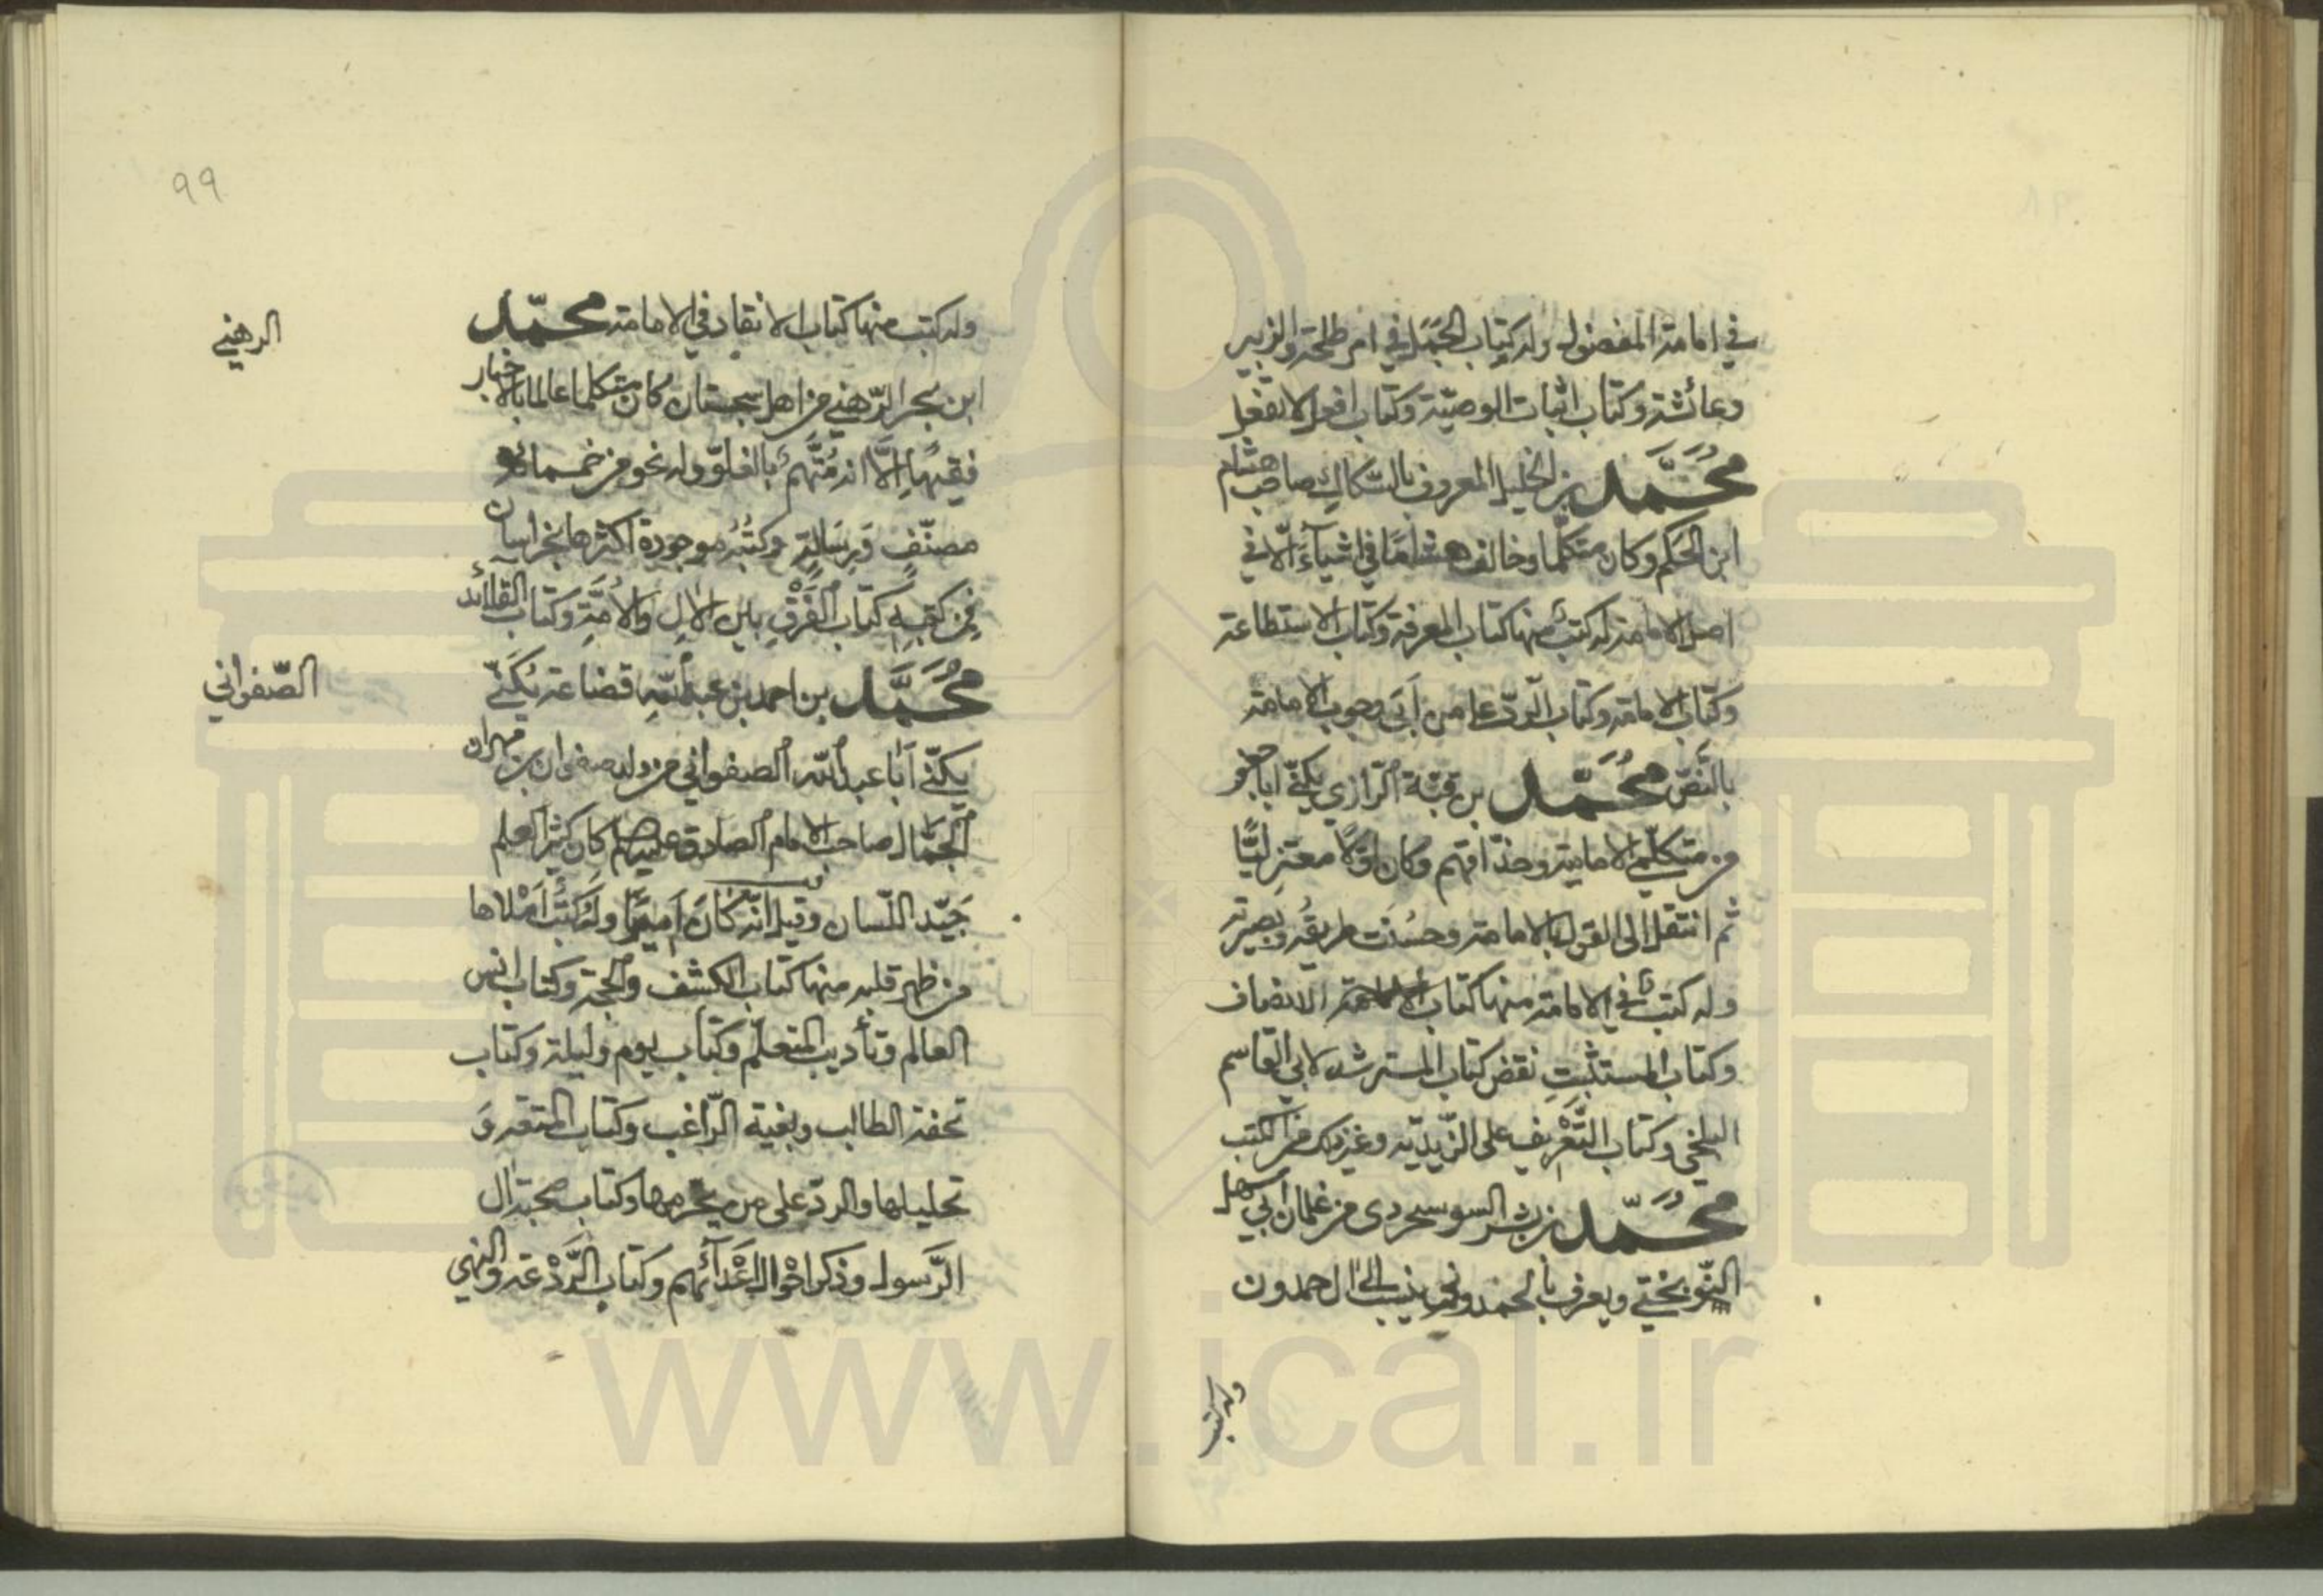 في امامة المفضول وله كتاب الجمل في امر طلحة والزبير
وعائشة وكتاب اثبات الوصيّة وكتاب افعل لا تفعل
مُحَمَّد بن الخليل المعروف بالسّكاك صاحب هشام
ابن الحكم وكان متكلّما وخالف هشاما في اشياء الّا في
اصل الامامة له كتب منها كتاب المعرفة وكتاب الاستطاعة
وكتاب الامامة وكتاب الردّ على من اَبَى وجوب الامامة
بالنَّصّ مُحَمَّد بن قبّة الرّازي يكنّى ابا جعفر
من متكلّمي الامامية وحذّاقهم وكان اوّلًا معتزليًّا
ثم انتقل الى القول بالامامة وحسُنَت طريقته وبصيرته
وله كتب في الامامة منها كتاب الانصاف
وكتاب المستثبت نقض كتاب المسترشد لابي القاسم
البلخي وكتاب التَّعْريف على الزّيديّة وغير ذلك من الكتب
مُحَمّد بن بشر السوسجردى من غلمان ابي سهل
النّوبختي ويعرف بالحمدوني ينسب الى ال حمدون
وله كتب
99
وله كتب منها كتاب الانقاد في الامامة محمّد
الرهني
ابن بحر الرّهني من اهل سجستان كان متكلما عالما بالاخبار
فقيهًا اِلّا انه مُتَّهَم بالغلوّ وله نحو من خمسمائة
مصنّفٍ وَرِسَالةٍ وكتُبُه موجودة اكثرها بخراسان
فمن كتبه كتاب الفَرْقِ بين الالِ والاُمَّةِ وكتاب القلائد
مُحَمَّد بن احمد بن عبد الله قضاعة يُكَنَّى
الصّفواني
يكنّى اَبا عبد الله الصفواني من ولد صفوان بن مهران
الجمّال صاحب الامام الصادق عليه السلام كان كثير العلم
جَيّد اللّسان وقيل انّه كانَ اُمّيًّا وله كُتُب اَمْلاها
من ظهر قلبه منها كتاب الكشف والحجة وكتاب انس
العالم وتأديب المتعلّم وكتاب يوم وليلة وكتاب
تحفة الطالب وبغية الرّاغب وكتاب المتعة وَ
تحليلها والردّ على من يحرمها وكتاب صحبة ال
الرّسول وذكر اَحْوال اَعْدَآئهم وكتاب الرَّدْعة والنهي
www.ical.ir